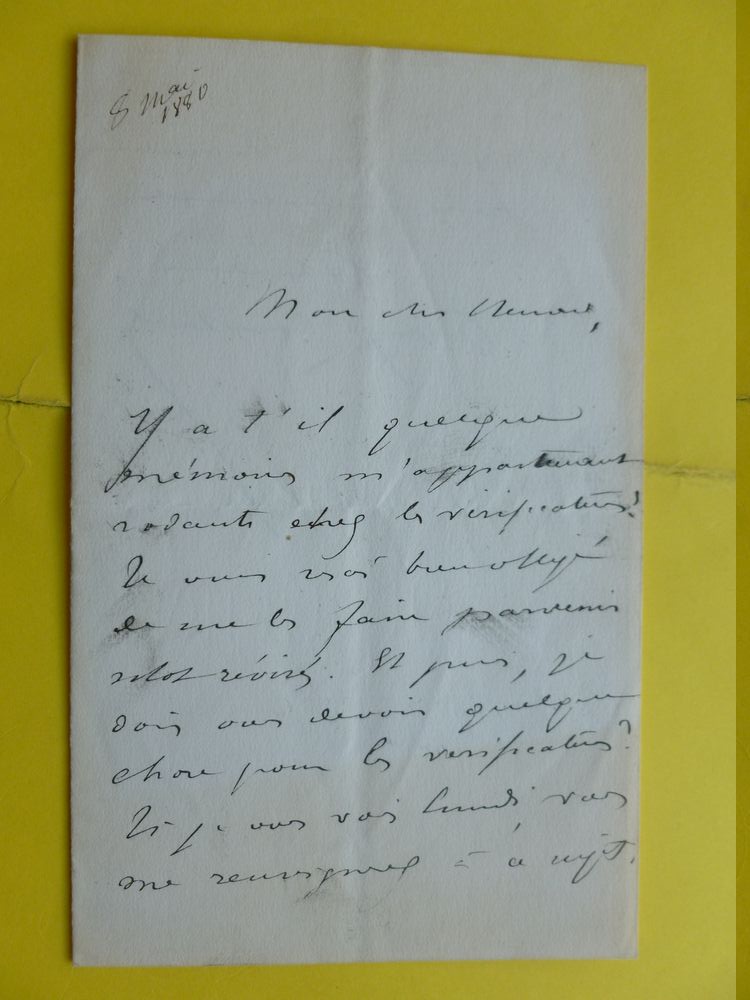 8 Mai
1880
Mon cher
Y a t'il quelque
mémoires m'appartenant
rodants chez les vérificateurs?
Je vous serai bien obligé
de me les faire parvenir
sitot révisés. Et puis, je
dois vous devoir quelque
chose pour les vérificateurs?
Si je vous vois lundi, vous
me renseignerez à ce sujet.